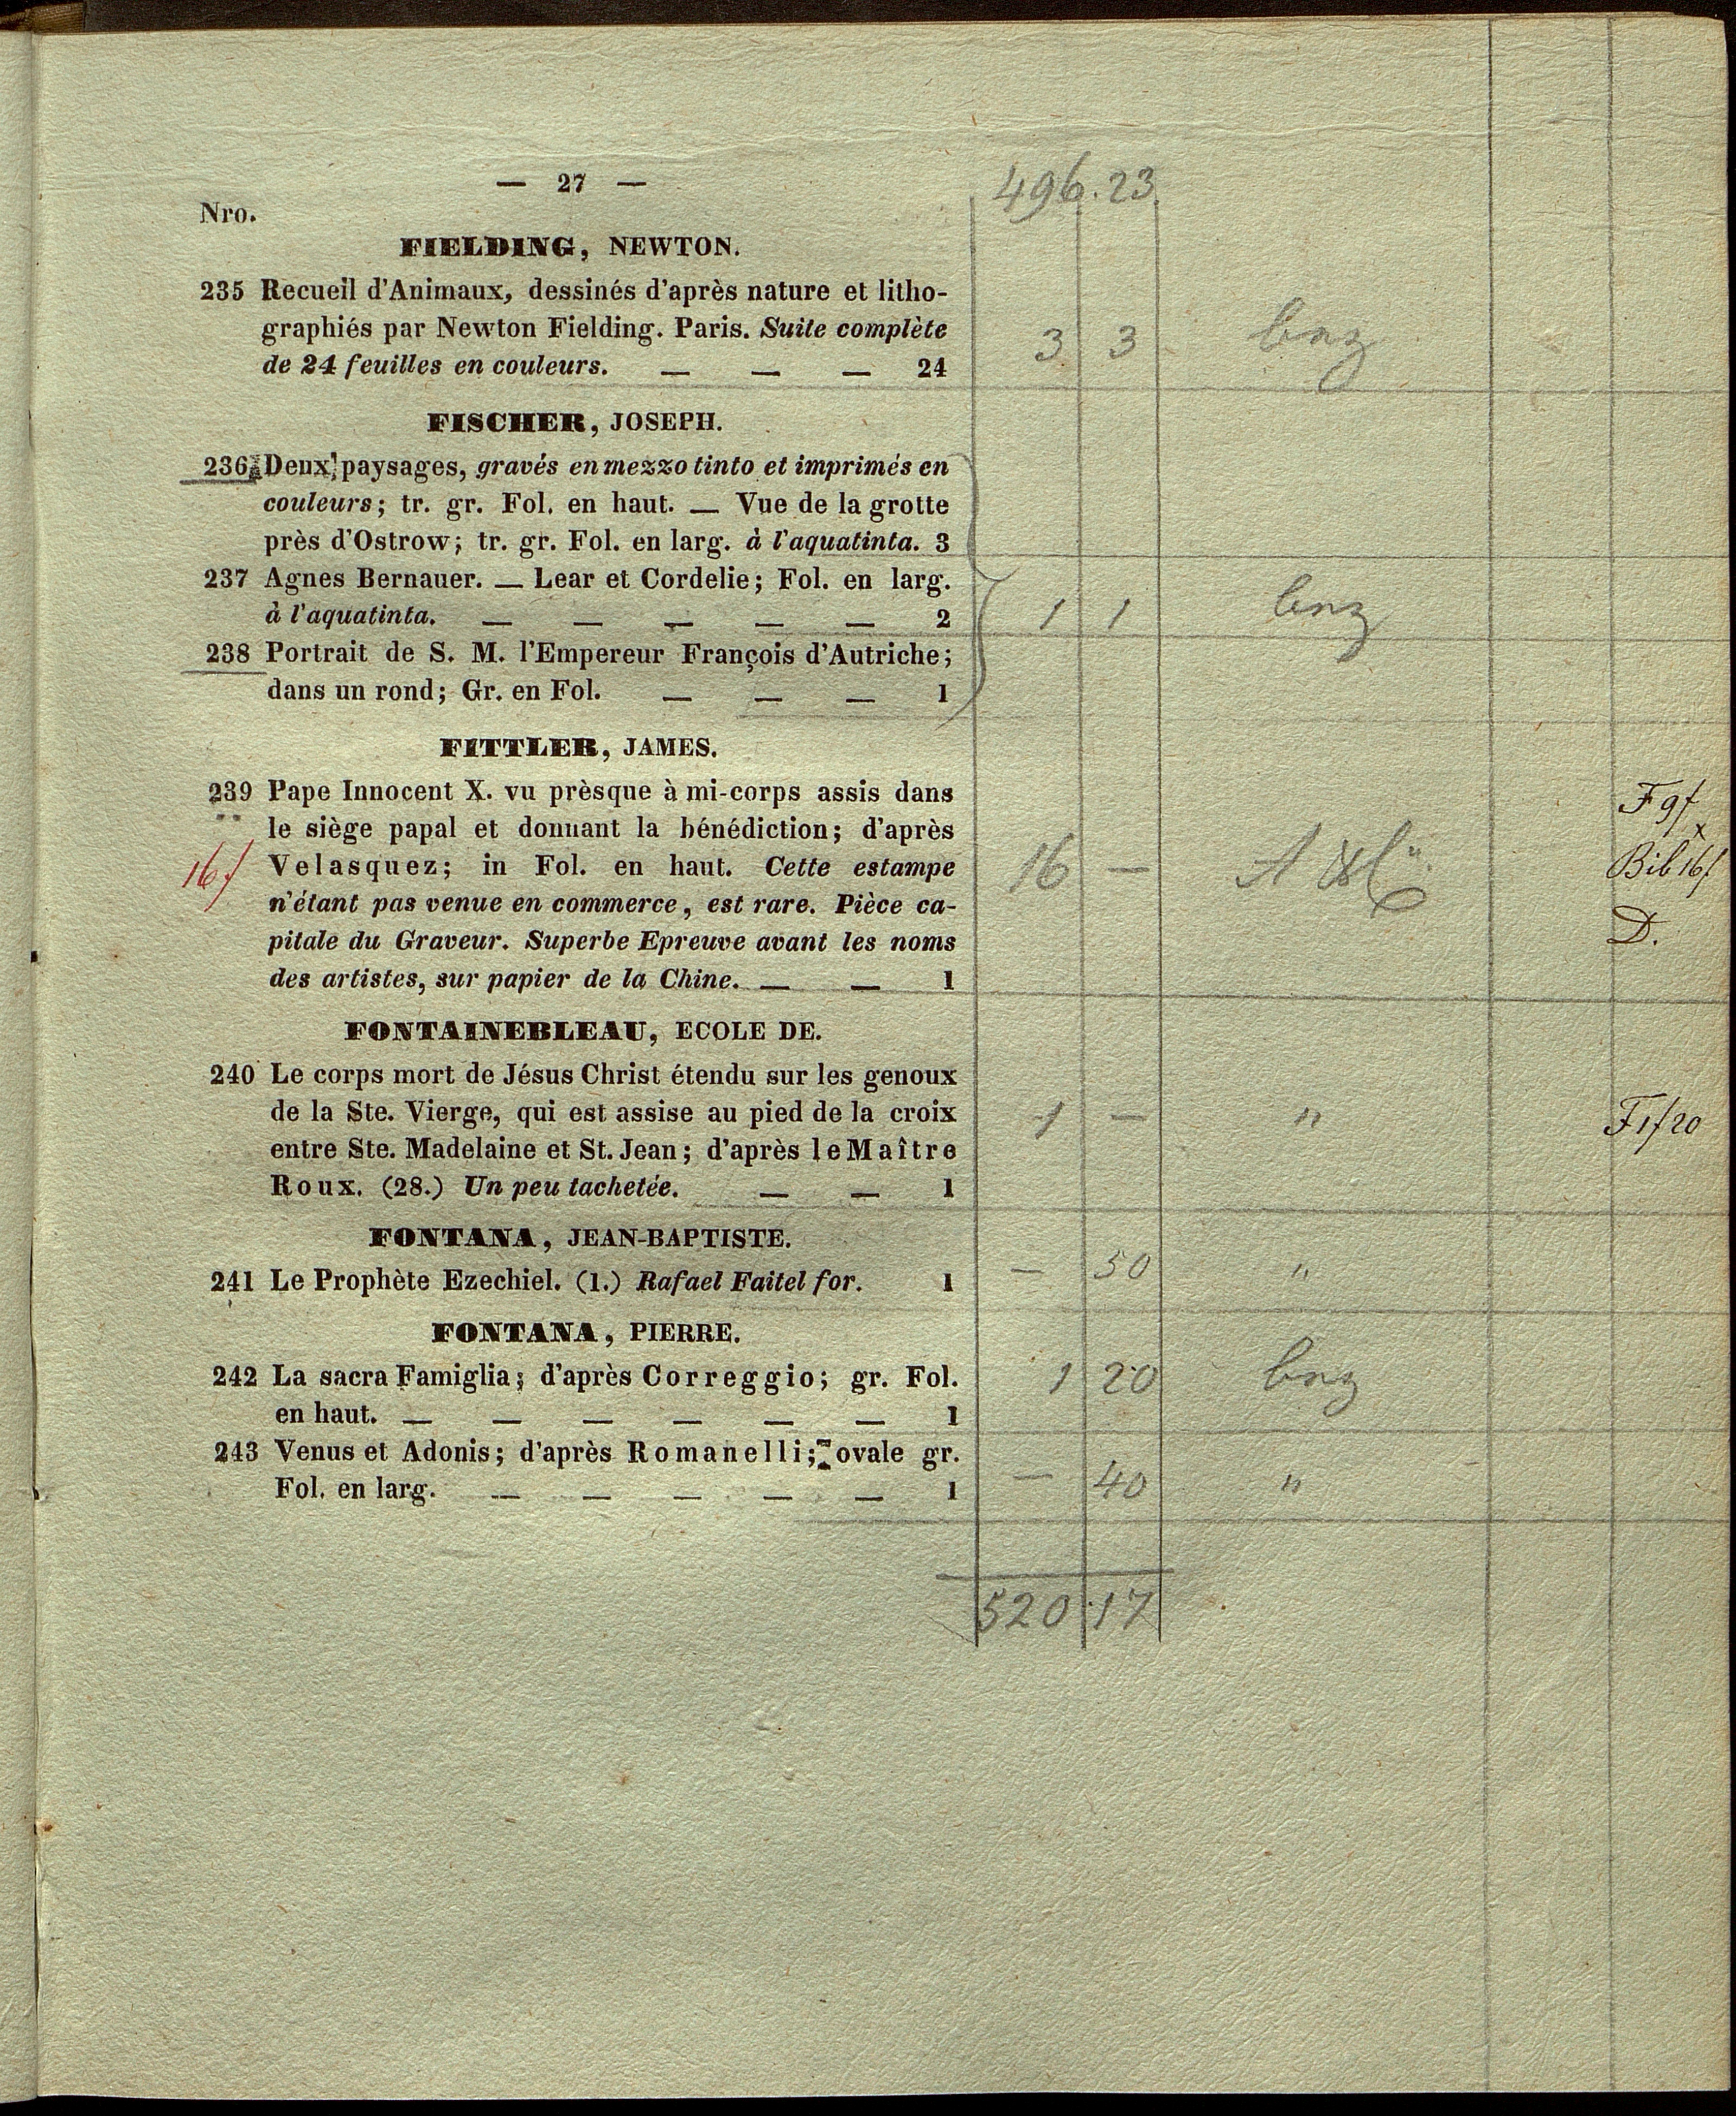 — 27 —
496.23
Nro.
FIELDING, NEWTON.
235 Recueil d'Animaux, dessinés d'après nature et litho-
graphiés par Newton Fielding. Paris. Suite complète
3 3
de 24 feuilles en couleurs. — — — 24
FISCHER, JOSEPH.
236 Deux paysages, gravés en mezzo tinto et imprimés en
couleurs; tr. gr. Fol. en haut. — Vue de la grotte
près d'Ostrow; tr. gr. Fol. en larg. à l'aquatinta. 3
237 Agnes Bernauer. — Lear et Cordelie; Fol. en larg.
à l'aquatinta. — — — — — 2
1 1
238 Portrait de S. M. l'Empereur François d'Autriche;
dans un rond; Gr. en Fol. — — — 1
FITTLER, JAMES.
239 Pape Innocent X. vu prèsque à mi-corps assis dans
F 9f
le siège papal et donnant la bénédiction; d'après
x
16f
Velasquez; in Fol. en haut. Cette estampe
16 —
Bib 16f
n'étant pas venue en commerce, est rare. Pièce ca-
pitale du Graveur. Superbe Epreuve avant les noms
D.
des artistes, sur papier de la Chine. — — 1
FONTAINEBLEAU, ECOLE DE.
240 Le corps mort de Jésus Christ étendu sur les genoux
de la Ste. Vierge, qui est assise au pied de la croix
1 — "
F1f20
entre Ste. Madelaine et St. Jean; d'après le Maître
Roux. (28.) Un peu tachetée. — — 1
FONTANA, JEAN-BAPTISTE.
241 Le Prophète Ezechiel. (1.) Rafael Faitel for. 1
— 50 "
FONTANA, PIERRE.
242 La sacra Famiglia; d'après Correggio; gr. Fol.
1 20
en haut. — — — — — — 1
243 Venus et Adonis; d'après Romanelli; ovale gr.
Fol. en larg. — — — — — 1
— 40 "
520.17